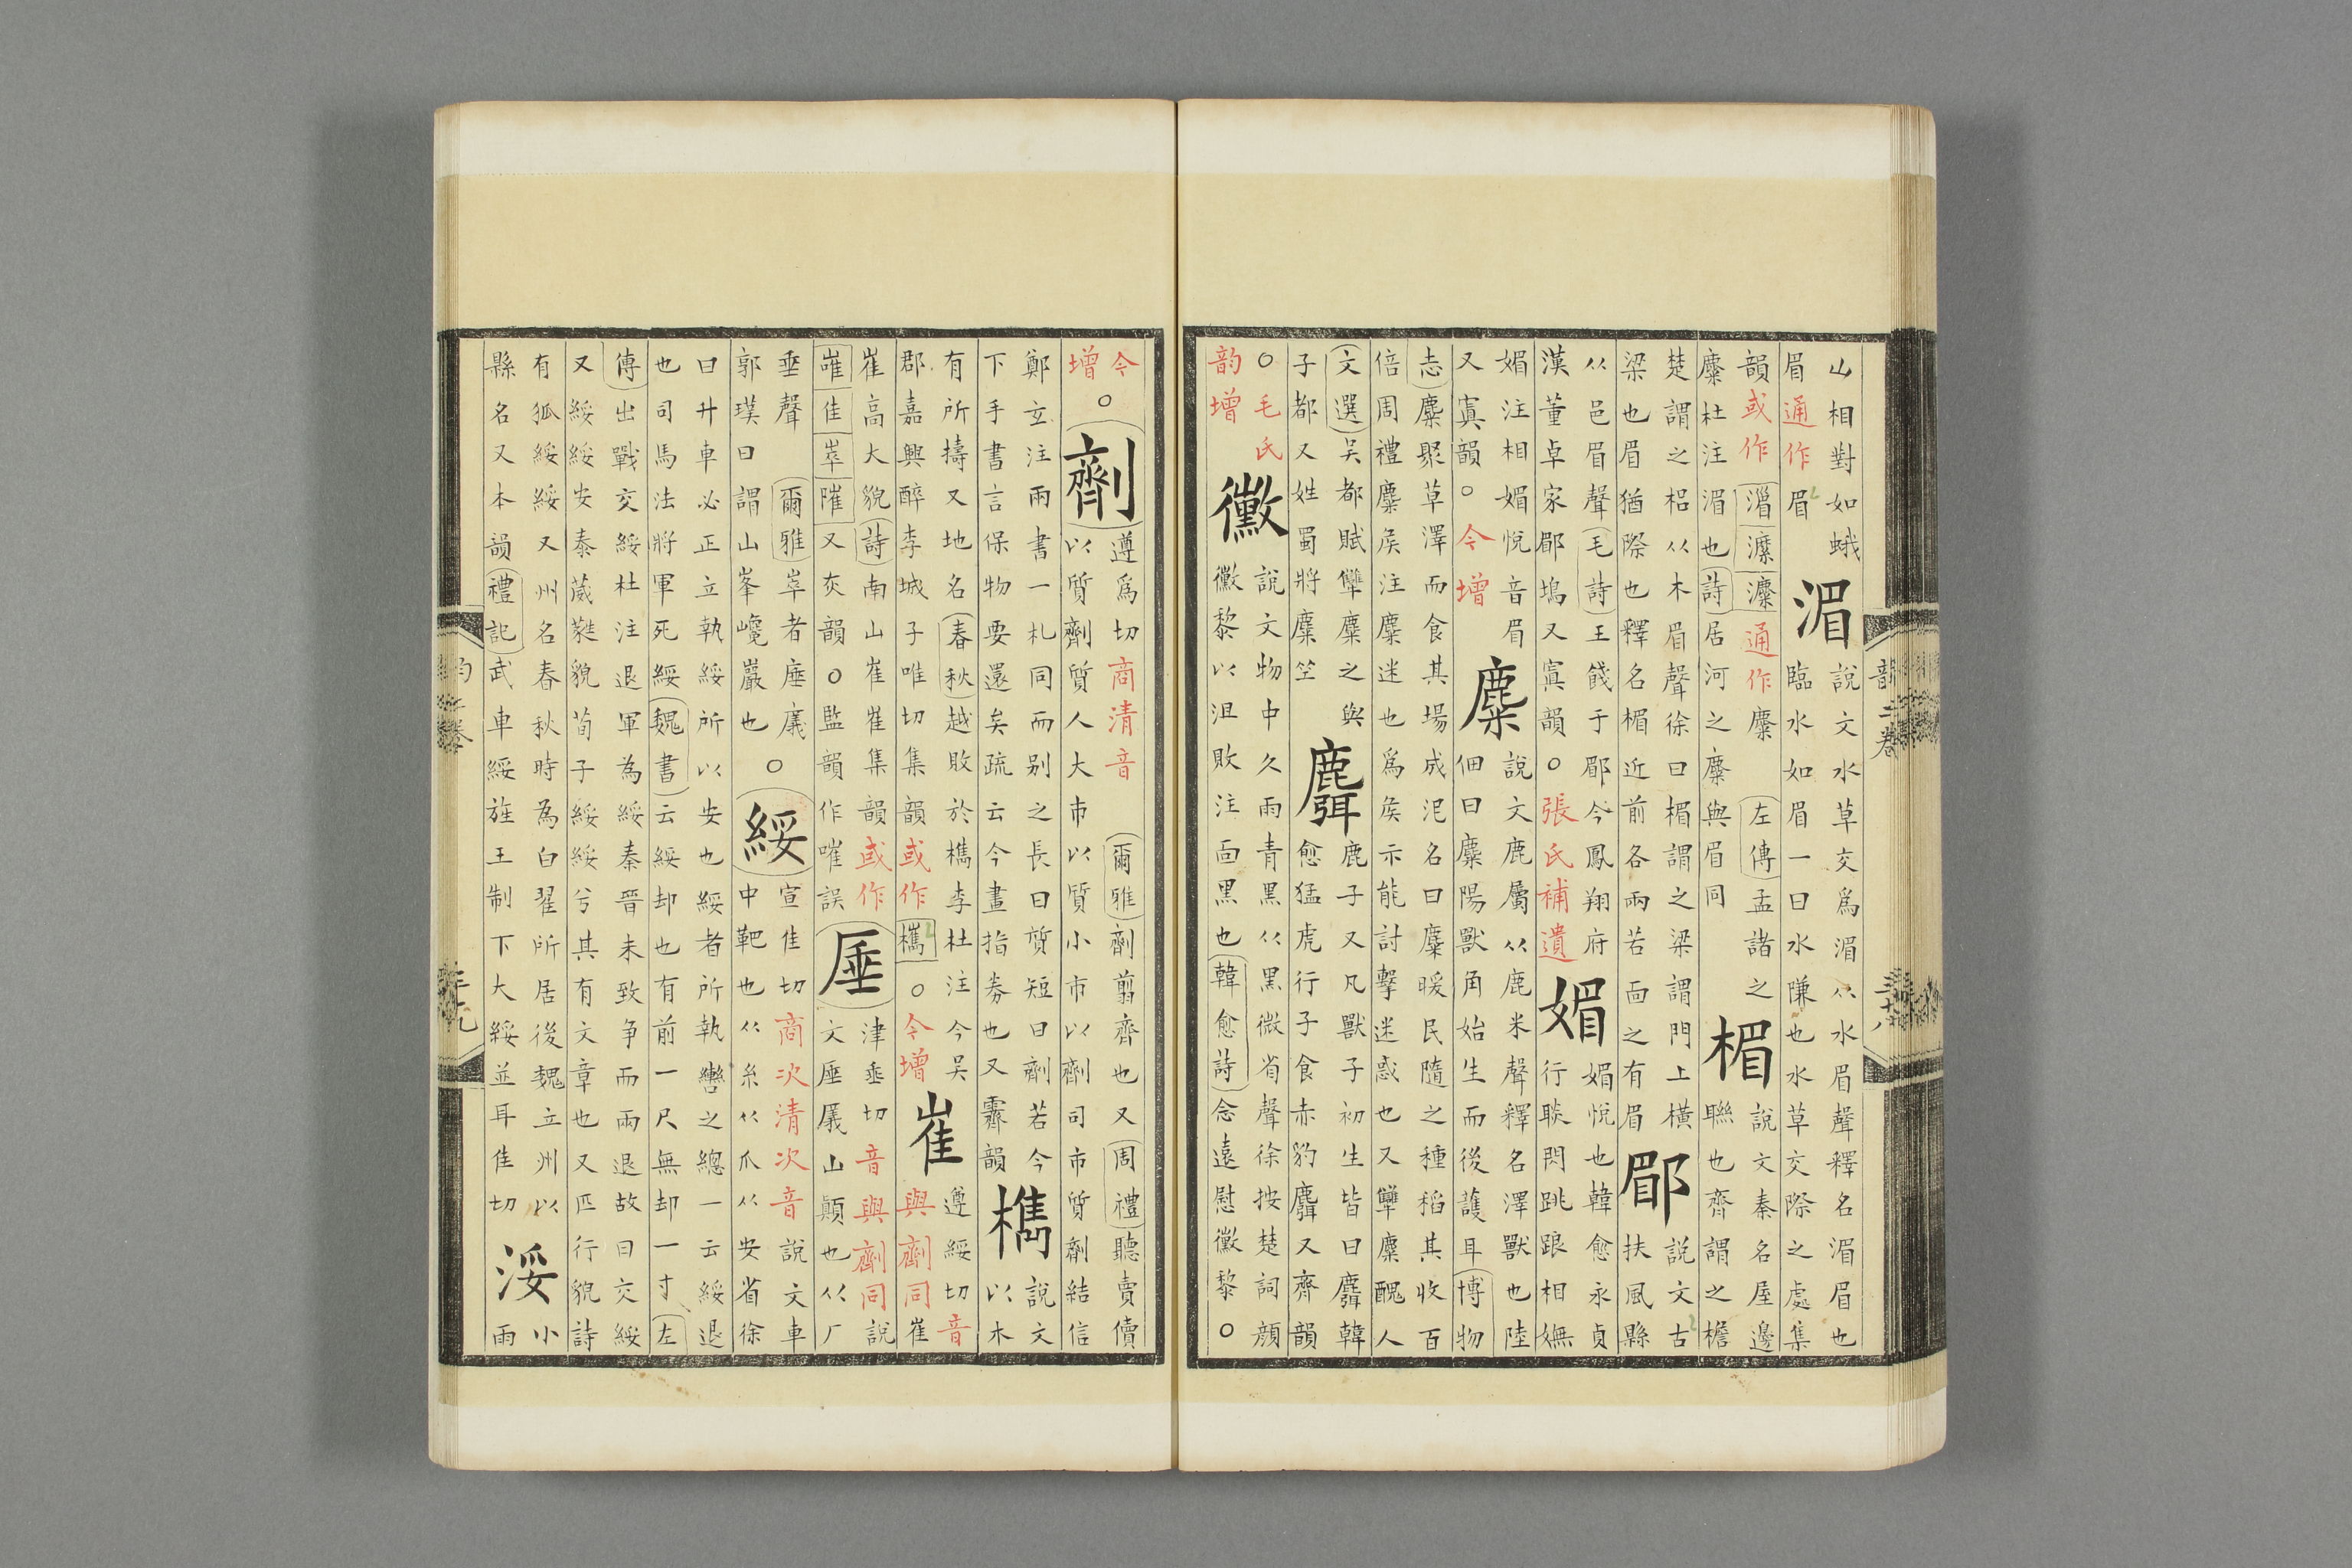 山相對如蛾
眉通作眉
湄
說文水草交爲湄从水眉聲釋名湄眉也
臨水如眉一曰水隒也水草交際之處集
韻或作通作麋左傳孟諸之
麋杜注湄也詩居河之麋與眉同
楣
說文秦名屋邊
聯也齊謂之檐
楚謂之梠从木眉聲徐曰楣謂之梁謂門上橫
梁也眉猶際也釋名楣近前各兩若面之有眉
郿
說文古
扶風縣
从邑眉聲毛詩王餞于郿今鳳翔府
漢董卓家郿塢又寘韻○張氏補遺
媚
媚悅也韓愈永貞
行聮閃跳踉相嫵
媚注相媚悅音眉
又寘韻○今增
麋
說文鹿屬从鹿米聲釋名澤獸也陸
佃曰麋陽獸角始生而後護耳博物
志麋聚草澤而食其場成泥名曰麋暖民隨之種稻其收百
倍周禮麋侯注麋迷也爲侯示能討擊迷惑也又孿麋醜人
文選吳都賦孿麋之與
子都又姓蜀將麋竺
麛
鹿子又凡獸子初生皆曰麛韓
愈猛虎行子食赤豹麛又齊韻
○毛氏
韵增
黴
說文物中久雨青黑从黑微省聲徐按楚詞顏
黴黎以沮敗注面黑也韓愈詩念遠慰黴黎○
韵二卷
三十八
今○
增
劑
遵爲切商清音爾雅劑翦齊也又周禮聽賣儥
以質劑質人大市以質小市以劑司市質劑結信
鄭玄注兩書一札同而别之長曰質短曰劑若今
下手書言保物要還矣疏云今畫指劵也又霽韻
檇
說文
以木
有所擣又地名春秋越敗於檇李杜注今吳
郡嘉興醉李城子唯切集韻或作欈○今增
崔
遵綏切音
與劑同崔
崔高大貌詩南山崔崔集韻或作
嶉隹崒陮又灰韻○監韻作嗺誤
厜
津垂切音與劑同說
文厜㕒山顚也从厂
垂聲爾雅崒者厜㕒○
郭璞曰謂山峯巉巖也
綏
宣隹切商次清次音說文車
中靶也从糸从爪从安省徐
曰升車必正立執綏所以安也綏者所執轡之總一云綏退
也司馬法將軍死綏魏書云綏却也有前一尺無却一寸左
傳出戰交綏杜注退軍為綏秦晉未致争而兩退故曰交綏
又綏綏安泰葳蕤貌荀子綏綏兮其有文章也又匹行貌詩
有狐綏綏又州名春秋時為白翟所居後魏立州以
縣名又本韻禮記武車綏旌王制下大綏並耳隹切
浽
小
雨